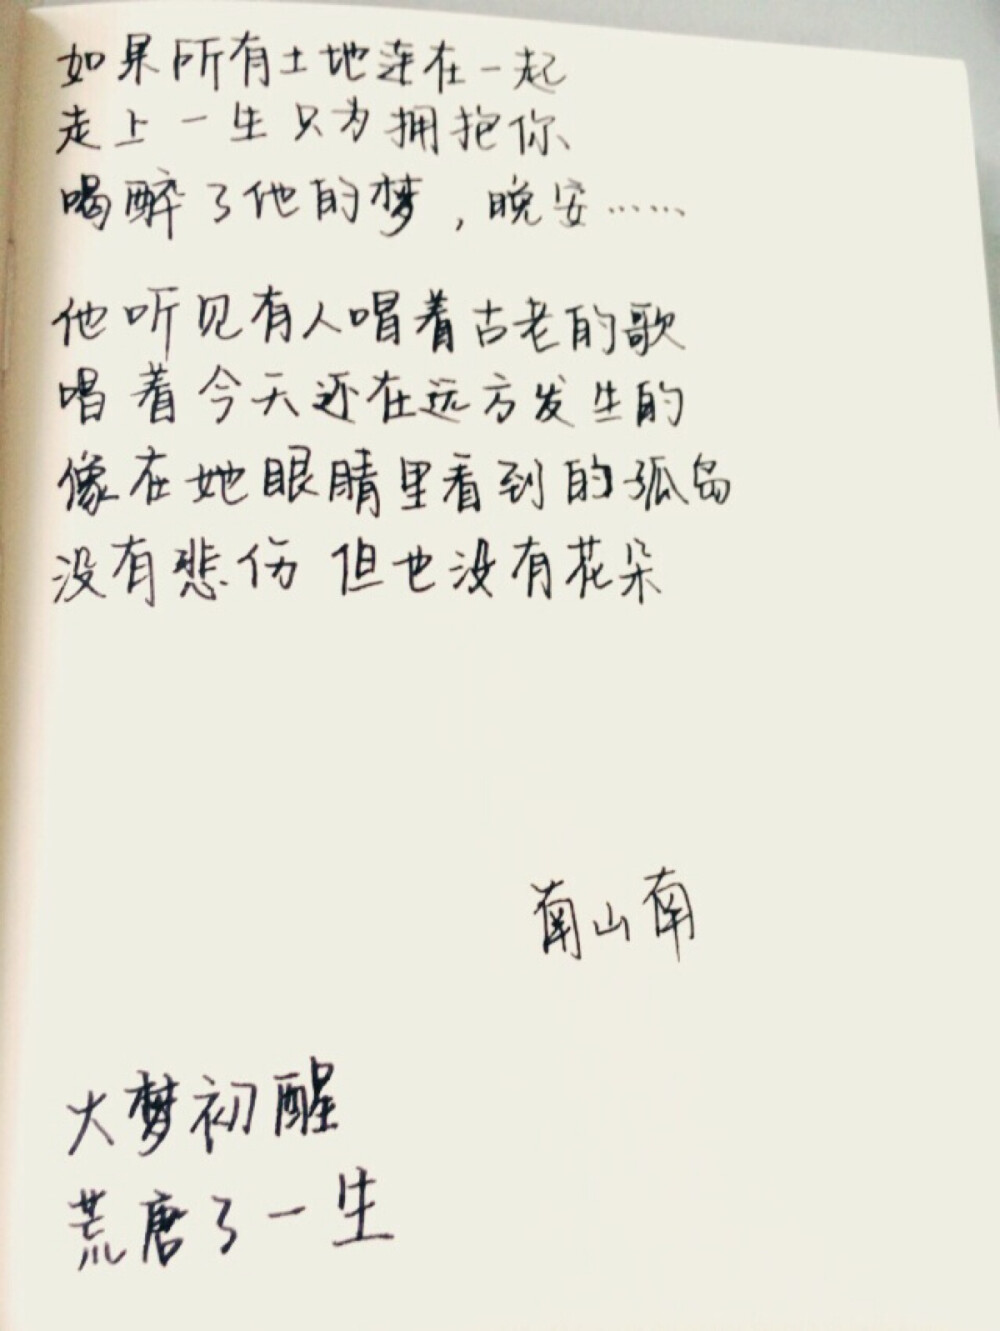 如果所有土地连在一起
走上一生只为拥抱你
喝醉了他的梦，晚安……
他听见有人唱着古老的歌
唱着今天还在远方发生的
像在她眼睛里看到的孤岛
没有悲伤 但也没有花朵
南山南
大梦初醒
荒唐了一生